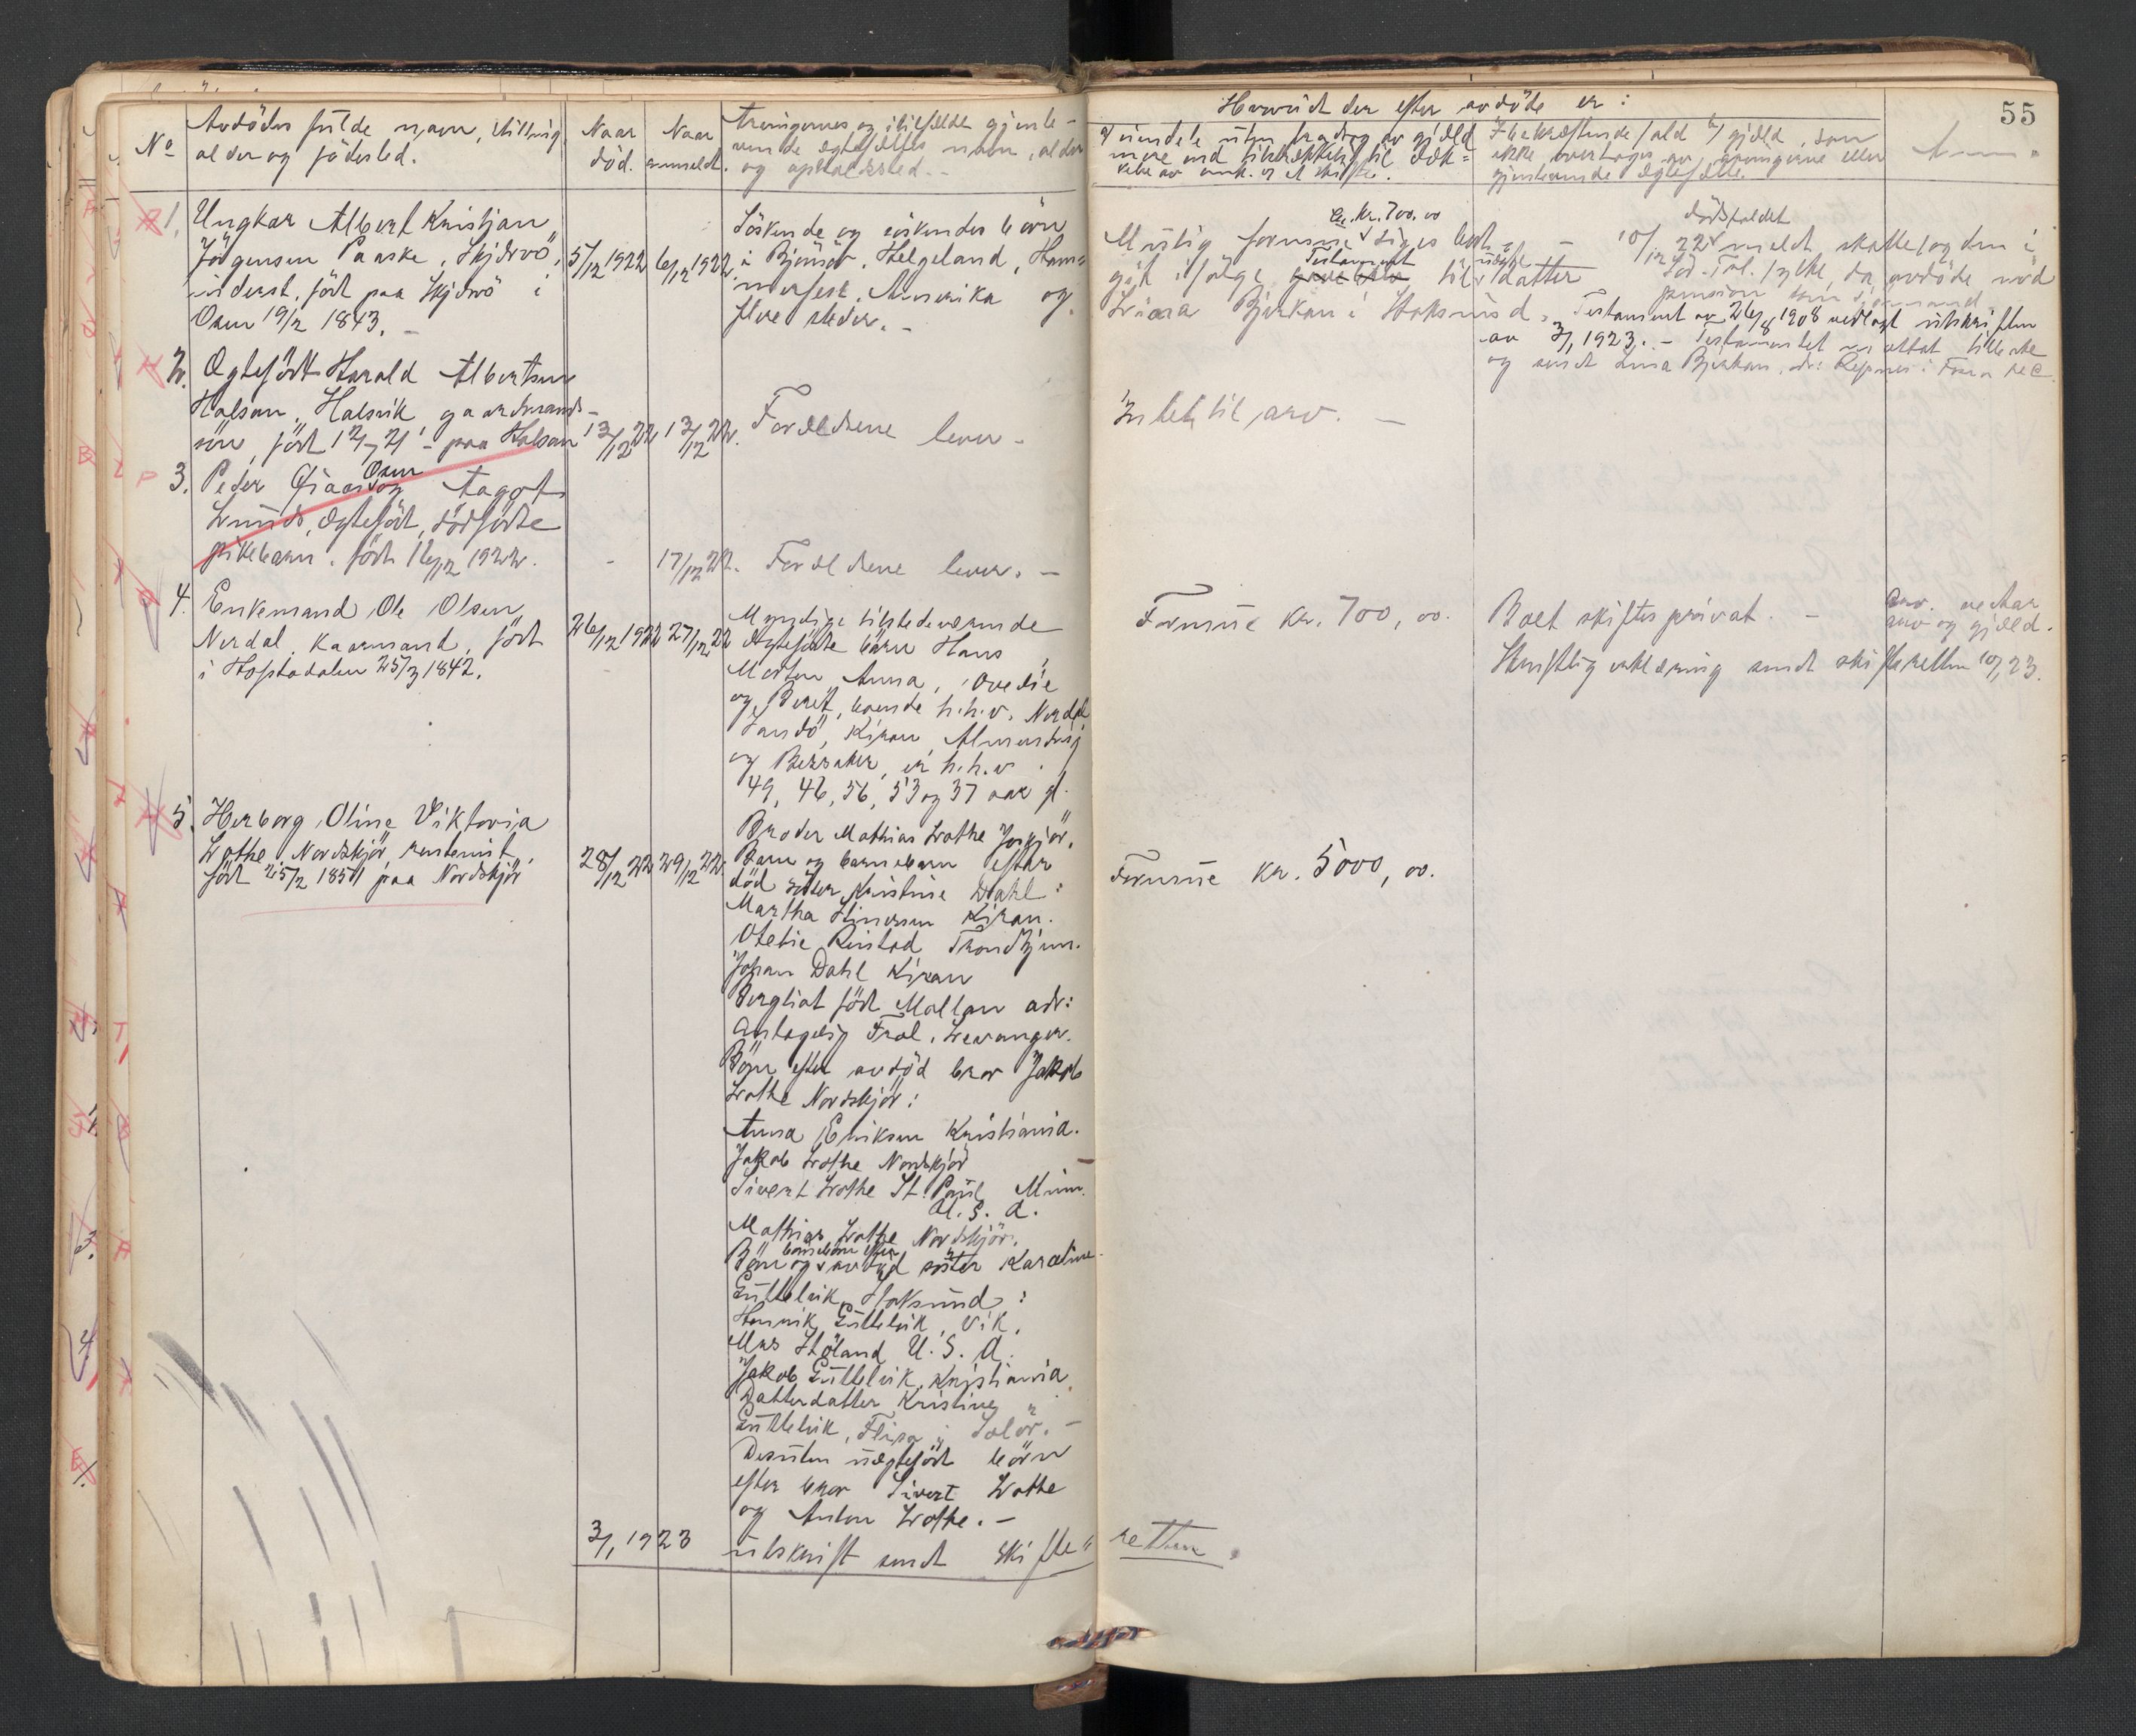 55
No
Avdødes fulde navn, stilling,
alder og fødested.
Naar
død.
Naar
anmeldt.
Arvingernes og i tilfælde gjenle-
vende ægtefælles navn, alder
og opholdssted. -
Hvorvidt der efter avdøde er:
a) midler uten fradrag av gjæld
mere end tilstrækkelig til dæk-
kelse av omk. ved et skifte.
I bekræftende fald b) gjæld, som
ikke overtages av arvingerne eller
gjenlevende ægtefælle.
Anm.
1. Ungkar Albert Kristjan
Jørgensen Paaske, Skjærvø,
inderst, født paa Skjærvø i
Osen 19/2 1843. -
5/12 1922
6/12 1922
Søskende og søskendes børn
i Bjønør, Helgeland, Ham-
merfest, Amerika og
flere steder. -
ca. kr. 700,00
Mulig formue siges bort-
git ifølge Testament til datter
Bjørkan i Stoksund.
dødsfaldet
10/12 22 meldt skattefogden i
Sør-Trl. fylke, da avdøde nød
pension som sjømand.
Testament av 26/8 1908 vedlagt utskriften
av 3/1 1923. - Testamentet
og sendt Bjørkan, adr:
2. Ægtefødt Harald Albertsen
Halsan, Halsvik gaardmands-
søn, født paa Halsan
13/12 22
13/12 22.
Forældrene lever. -
Intet til arv. -
3. Peder Osen og Aagot
Lunds, ægtefødt, dødfødte
pikebarn, født 16/12 1922.
-
17/12 22.
Forældrene lever. -
4. Enkemand Ole Olsen
Nerdal, kaarmand, født
i Hopstadalen 25/3 1842.
26/12 1922
27/12 22
Myndige tilstedeværende
ægtefødte børn Hans,
Morten, Anna, Ovedie
og Beret, boende h.h.v. Nerdal
Sandø, Kiran, Almenning
og Bessaker, er h.h.v.
49, 46, 56, 53 og 37 aar gl.
Formue kr. 700,00.
Boet skiftes privat. -
Arv. vedtar
arv og gjæld.
Skriftlig erklæring sendt skifteretten 10/1 23.
5. Herborg Oline Viktoria
Lothe, Nordskjør, rentenist,
født 25/2 1851 paa Nordskjør
28/12 22
29/12 22.
Broder Mathias Lothe
Barn og barnebarn efter
død søster Kristine Dahl:
Martha Kiran.
Otelie Trondhjem.
Johan Dahl Kiran
Bergliot født Moltan adr:
Antagelig Frol, Levanger.
Børn efter avdød bror Jakob
Lothe Nordskjør:
Anna Eriksen Kristiania.
Jakob Lothe Nordskjør
Sivert Lothe St. Paul Minn.
U. S. A.
Mathias Lothe Nordskjør.
Børn og barnebørn efter avdød søster Karoline
Guttelvik, Stoksund:
Henrik Guttelvik, Vik.
Mrs U. S. A.
Jakob Guttelvik, Kristiania
Datterdatter Kristine
Guttelvik, Flisa i Solør. -
Desuten uægtefødt børn
efter bror Sivert Lothe
og Anton Lothe. -
Formue kr. 5000,00.
3/1 1923 utskrift sendt skifte-
retten.